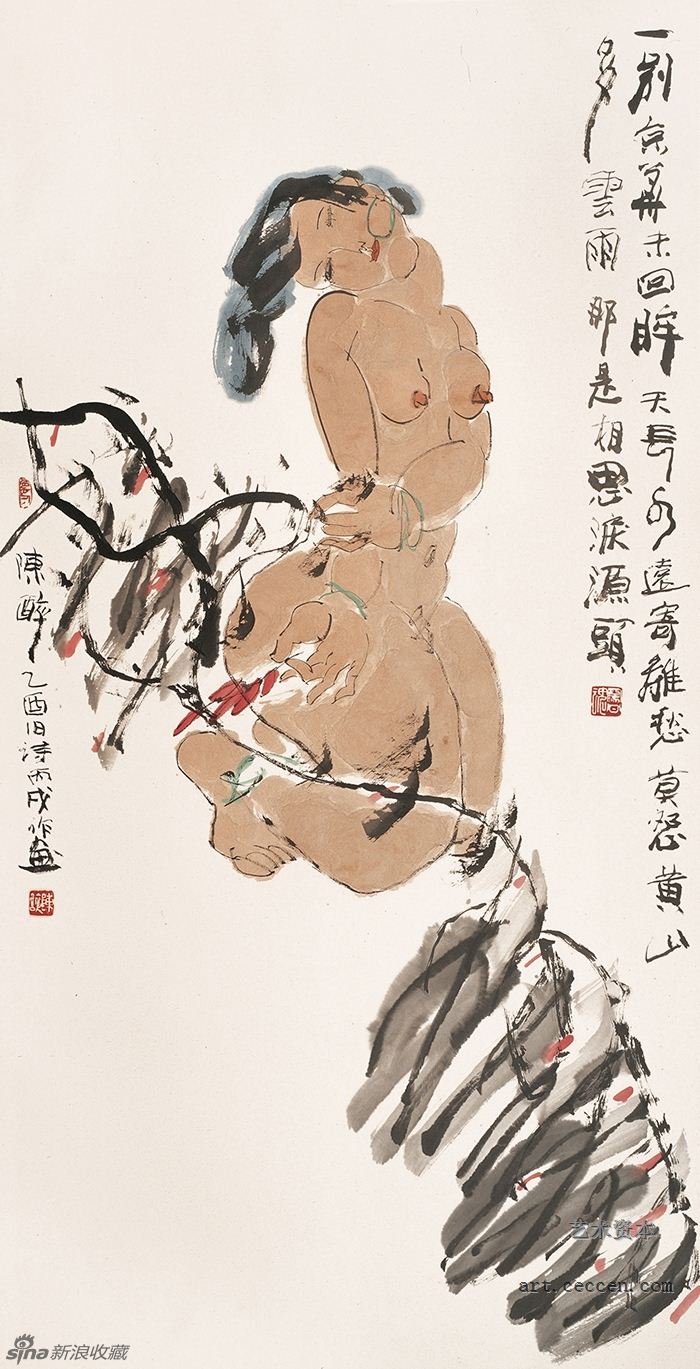 一别京華未回眸天長水遠寄離愁莫怨黄山
多雲雨那是相思淚源頭
陳醉乙酉旧诗丙戌作画
艺术资本
art.ceccen.com
sina新浪收藏